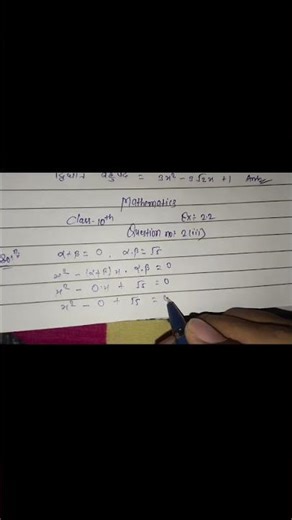 द्विघात बहुपद = 3x² - 3√2x + 1 Ans
Mathematics
Class-10th Ex: 2.2
Question no: 2(iii)
Solⁿ
α+β = 0 , α.β = √5
x² - (α+β)x + α.β = 0
x² - 0.x + √5 = 0
x² - 0 + √5 =